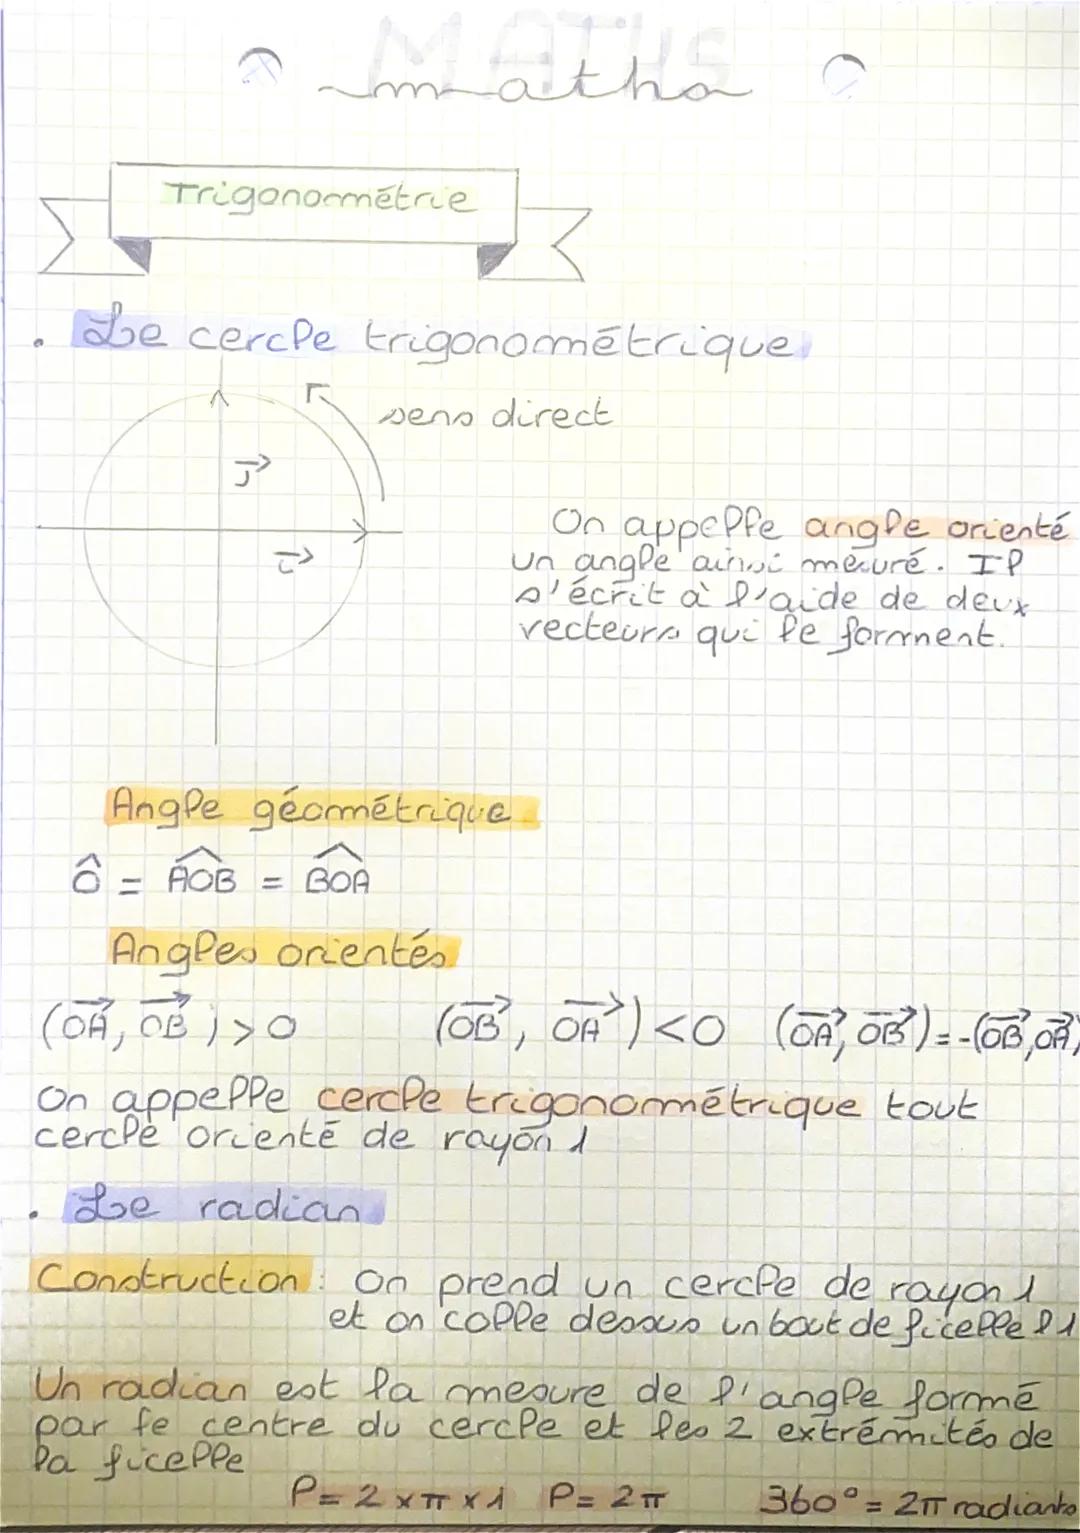 MATHS
maths
Trigonométrie
. Le cercle trigonométrique
sens direct
J
i
On appelle angle orienté
un angle ainsi mesuré. Il
s'écrit à l'aide de deux
vecteurs qui le forment.
Angle géométrique
Ô = AOB = BOA
Angles orientés
(OA, OB) > 0 (OB, OA) < 0 (OA, OB) = -(OB, OA)
On appelle cercle trigonométrique tout
cercle orienté de rayon 1
. Le radian
Construction : On prend un cercle de rayon 1
et on colle dessus un bout de ficelle l 1
Un radian est la mesure de l'angle formé
par le centre du cercle et les 2 extrémités de
la ficelle
P = 2 × π × 1 P = 2π 360° = 2π radiants